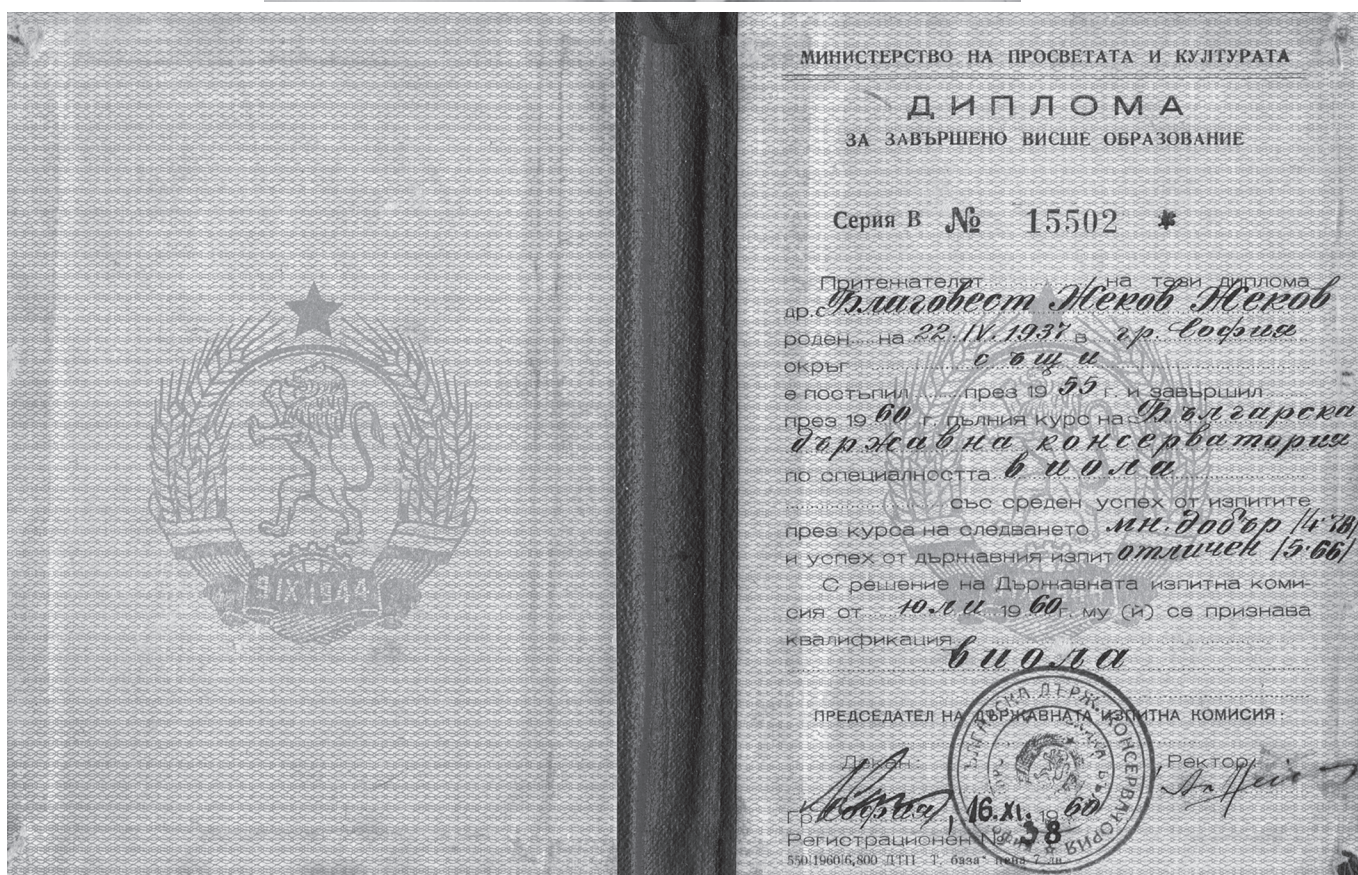 9·IX·1944
МИНИСТЕРСТВО НА ПРОСВЕТАТА И КУЛТУРАТА
ДИПЛОМА
ЗА ЗАВЪРШЕНО ВИСШЕ ОБРАЗОВАНИЕ
Серия В № 15502 *
Притежателят на тази диплома
др.с Благовест Жеков Жеков
роден на 22.IV.1937 в гр. София
окръг същи
е постъпил през 1955 г. и завършил
през 1960 г. пълния курс на Българска
държавна консерватория
по специалността виола
със среден успех от изпитите
през курса на следването мн. добър
и успех от държавния изпит отличен /5·66/
С решение на Държавната изпитна коми-
сия от юли 1960 г. му (ѝ) се признава
квалификация
виола
ПРЕДСЕДАТЕЛ НА ДЪРЖАВНАТА ИЗПИТНА КОМИСИЯ:
Декан: Ректор:
Гр. София, 16.XI.1960
Регистрационен № 38
550|1960|6,800 ДТП Т. база цена 7 лв.
БЪЛГАРСКА ДЪРЖ. КОНСЕРВАТОРИЯ